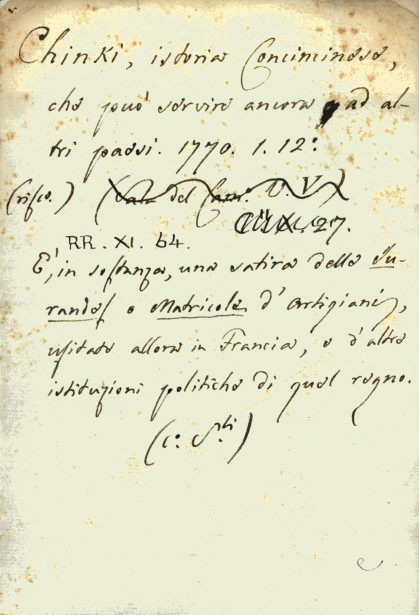 Chinki, istoria Concincinese,
che può servire ancora ad al-
tri paesi. 1770. 1. 12º.
(rifco.) (Sala del Cam. U. V.)
XI. 27.
RR. XI. 64.
E', in sostanza, una satira delle Ju-
randes e Matricole d'Artigiani,
usitate allora in Francia, e d'altre
istituzioni politiche di quel regno.